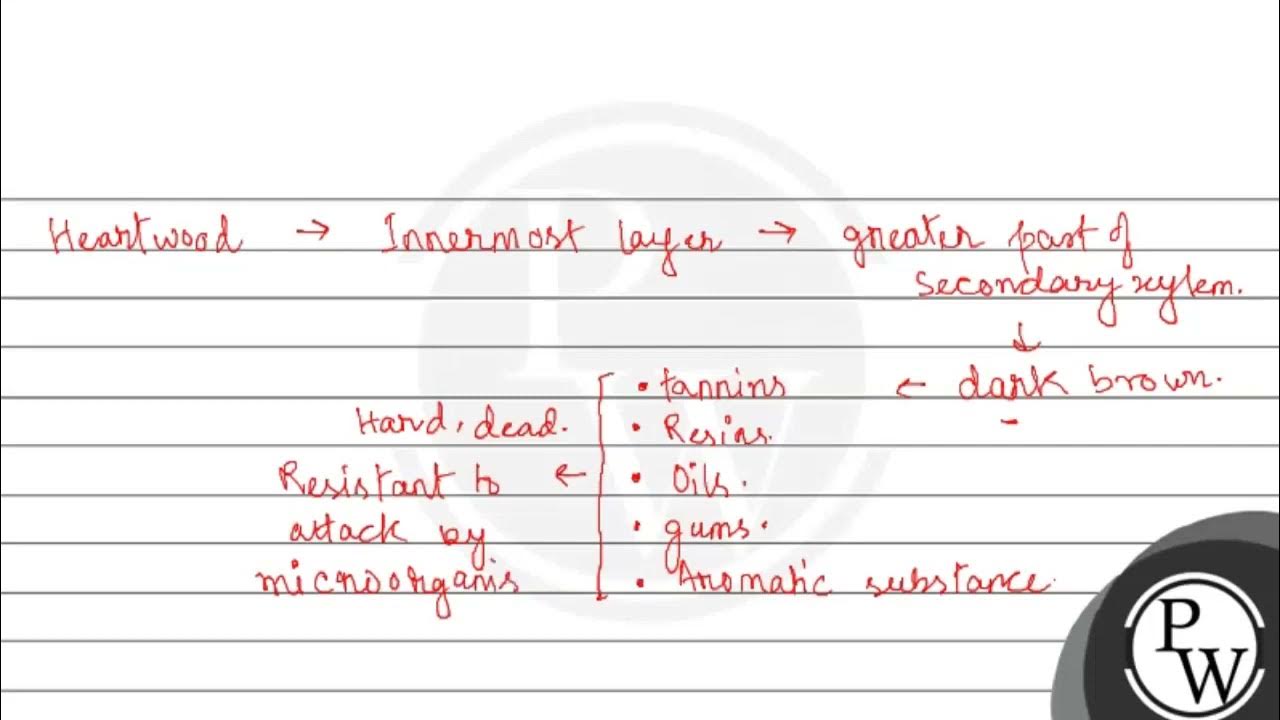 Heartwood → Innermost layer → greater part of
secondary xylem.
↓
← dark brown.
• tannins
• Resins.
• Oils.
• gums.
• Aromatic substance.
Hard, dead.
Resistant to ←
attack by
microorganis
P
W
PW